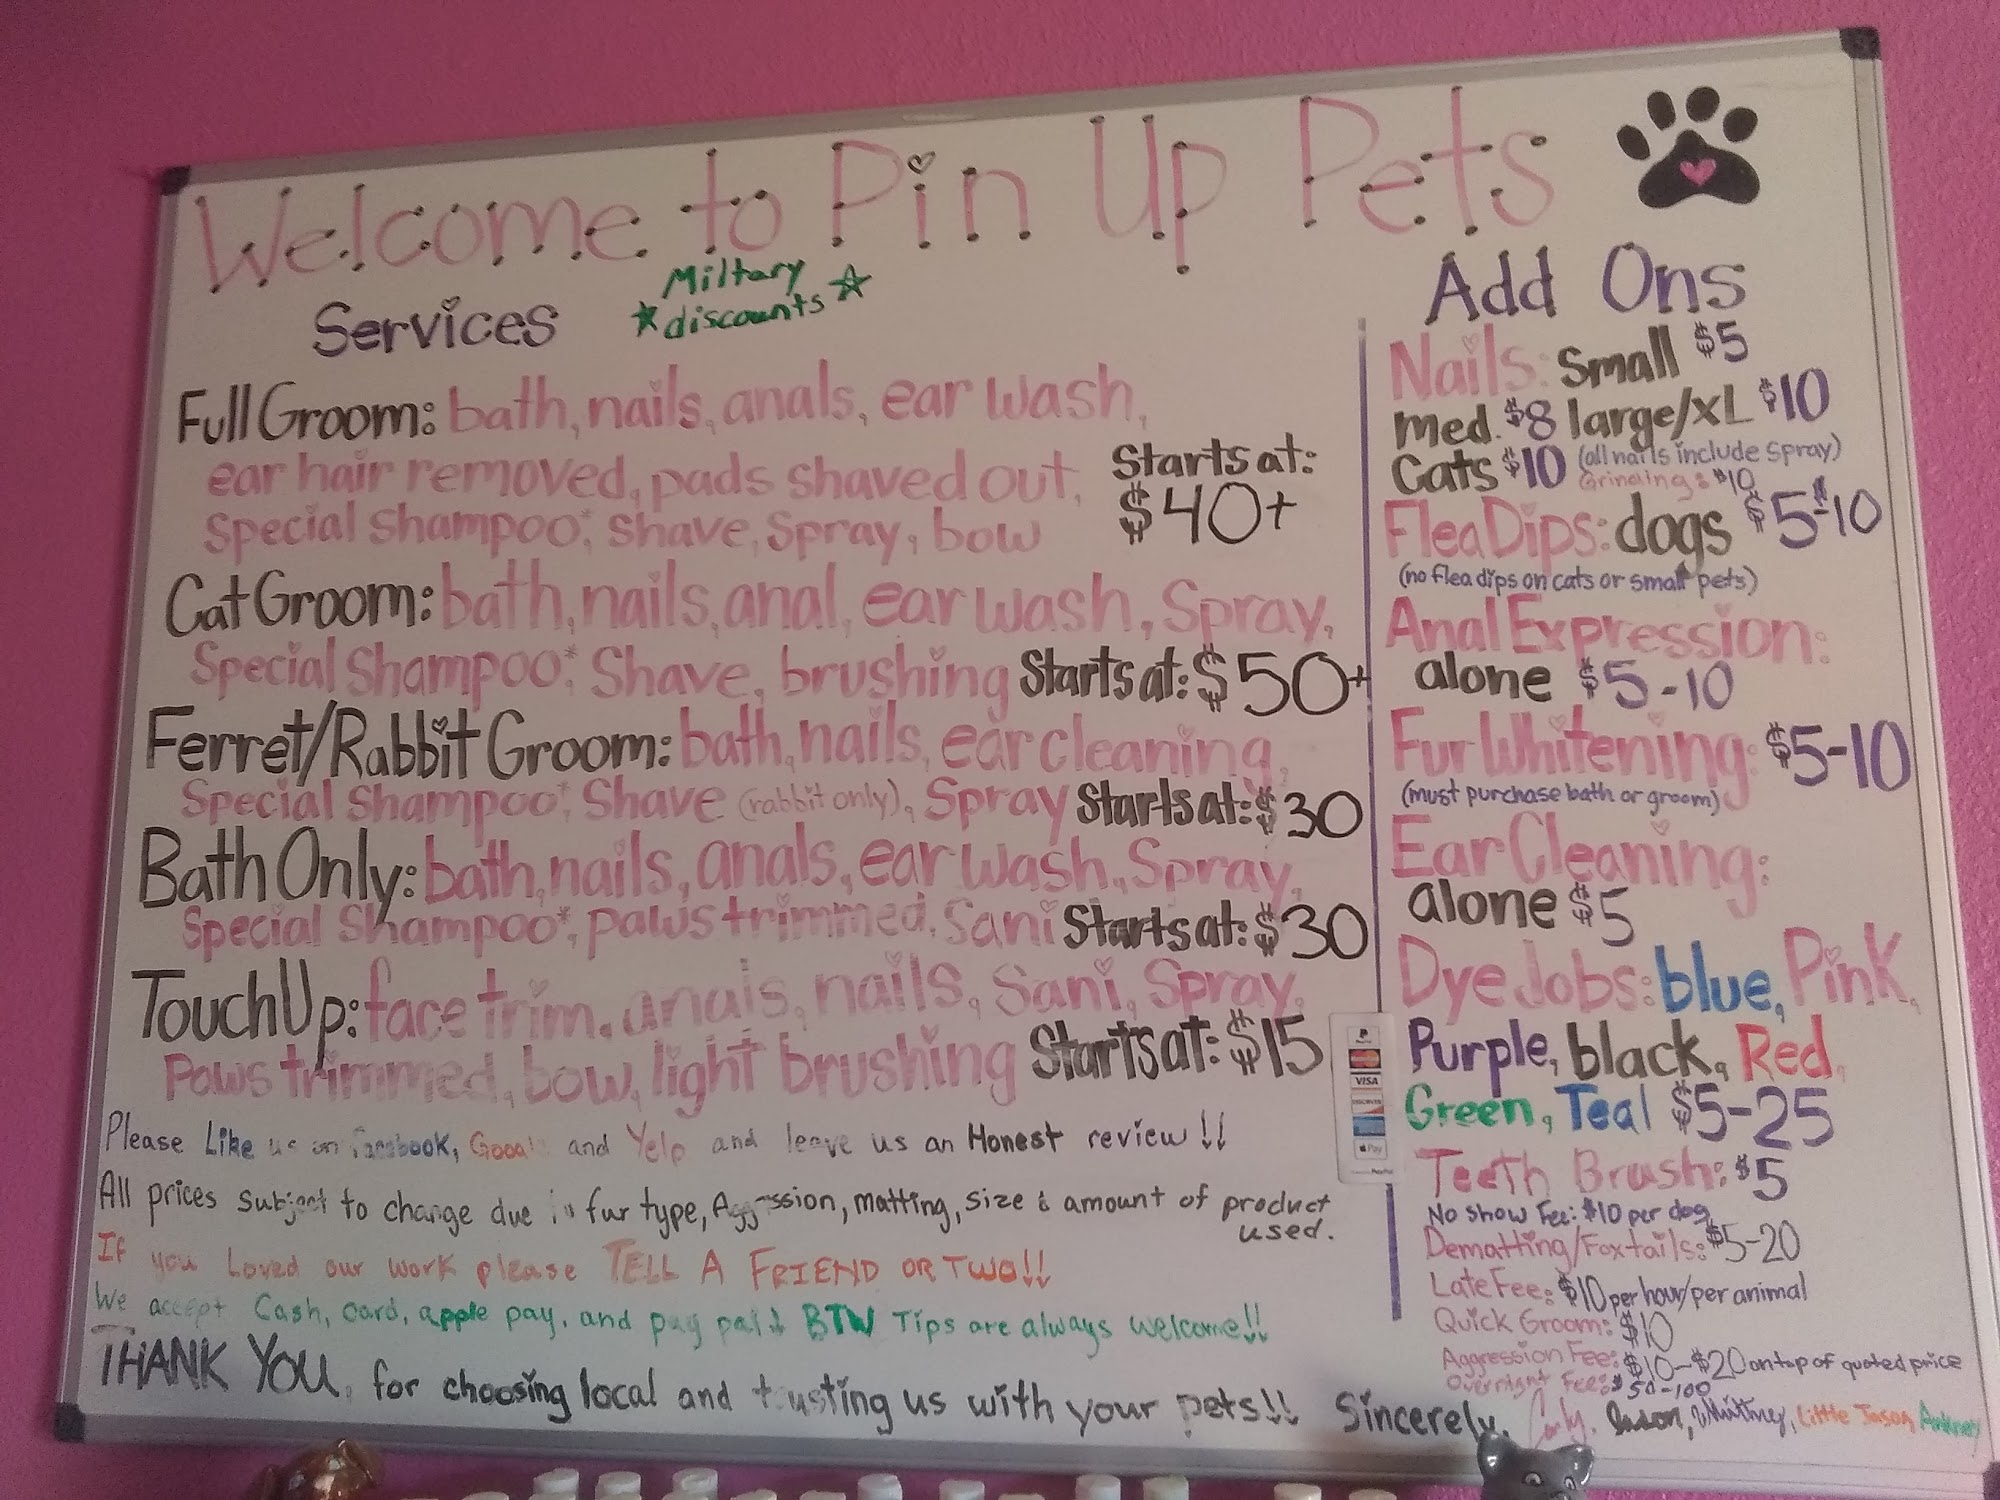 Welcome to Pin Up Pets
Services
Miltary
discounts
Full Groom: bath, nails, anals, ear wash,
ear hair removed, pads shaved out,
Special Shampoo*, Shave, Spray, bow
Starts at:
$40+
Cat Groom: bath, nails, anal, ear wash, Spray,
Special Shampoo*, Shave, brushing Starts at: $50+
Ferret/Rabbit Groom: bath, nails, ear cleaning,
Special Shampoo*, Shave (rabbit only), Spray Starts at: $30
Bath Only: bath, nails, anals, ear wash, Spray,
Special Shampoo*, paws trimmed, Sani Starts at: $30
Touch Up: face trim, anals, nails, Sani, Spray,
Paws trimmed, bow, light brushing Starts at: $15
Please Like us on facebook, Google and Yelp and leave us an Honest review!!
All prices subject to change due to fur type, Aggression, matting, size & amount of product
used.
If you Loved our work please TELL A FRIEND OR TWO!!
We accept Cash, Card, apple pay, and pay pal! BTW Tips are always welcome!!
THANK YOU, for choosing local and trusting us with your pets!! Sincerely, Carly, Jason, Whitney, Little Jason,
Add Ons
Nails: Small $5
med. $8 large/XL $10
Cats $10 (all nails include spray)
Grinding: $10
Flea Dips: dogs $5-$10
(no flea dips on cats or small pets)
Anal Expression:
alone $5-10
Fur Whitening: $5-10
(must purchase bath or groom)
Ear Cleaning:
alone $5
Dye Jobs: blue, Pink,
Purple, black, Red,
Green, Teal $5-25
Teeth Brush: $5
No Show Fee: $10 per dog
Dematting/Foxtails: $5-20
Late Fee: $10 per hour/per animal
Quick Groom: $10
Aggression Fee: $10-$20 on top of quoted price
overnight Fee: $50-100
PayPal
VISA
DISCOVER
Pay